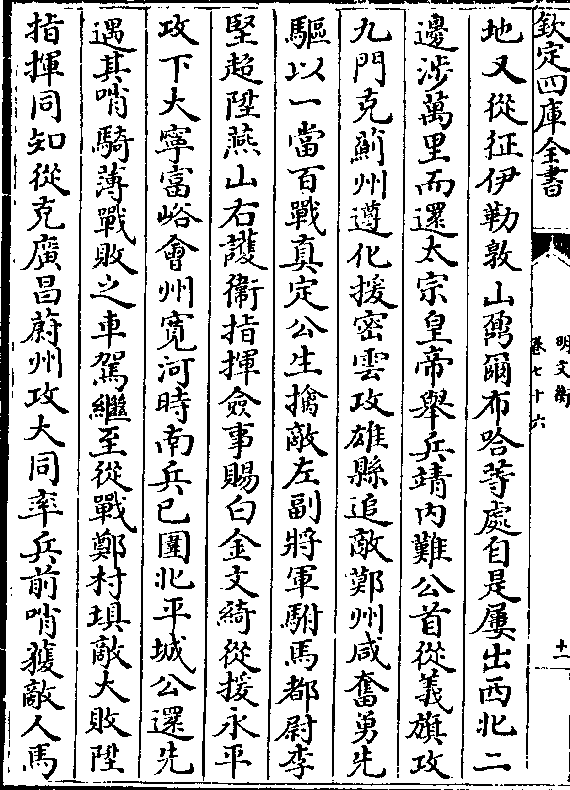 欽定四庫全書
明文衡
卷七十六
十一
地又從征伊勒敦山鄂爾布哈等處自是屢出西北二
邊涉萬里而還太宗皇帝舉兵靖内難公首從義旗攻
九門克薊州遵化援密雲攻雄縣追敵鄭州咸奮勇先
驅以一當百戰真定公生擒敵左副將軍駙馬都尉李
堅超陞燕山右護衛指揮僉事賜白金文綺從援永平
攻下大寧富峪會州寛河時南兵已圍北平城公還先
遇其哨騎薄戰敗之車駕繼至從戰鄭村埧敵大敗陞
指揮同知從克廣昌蔚州攻大同率兵前哨獲敵人馬